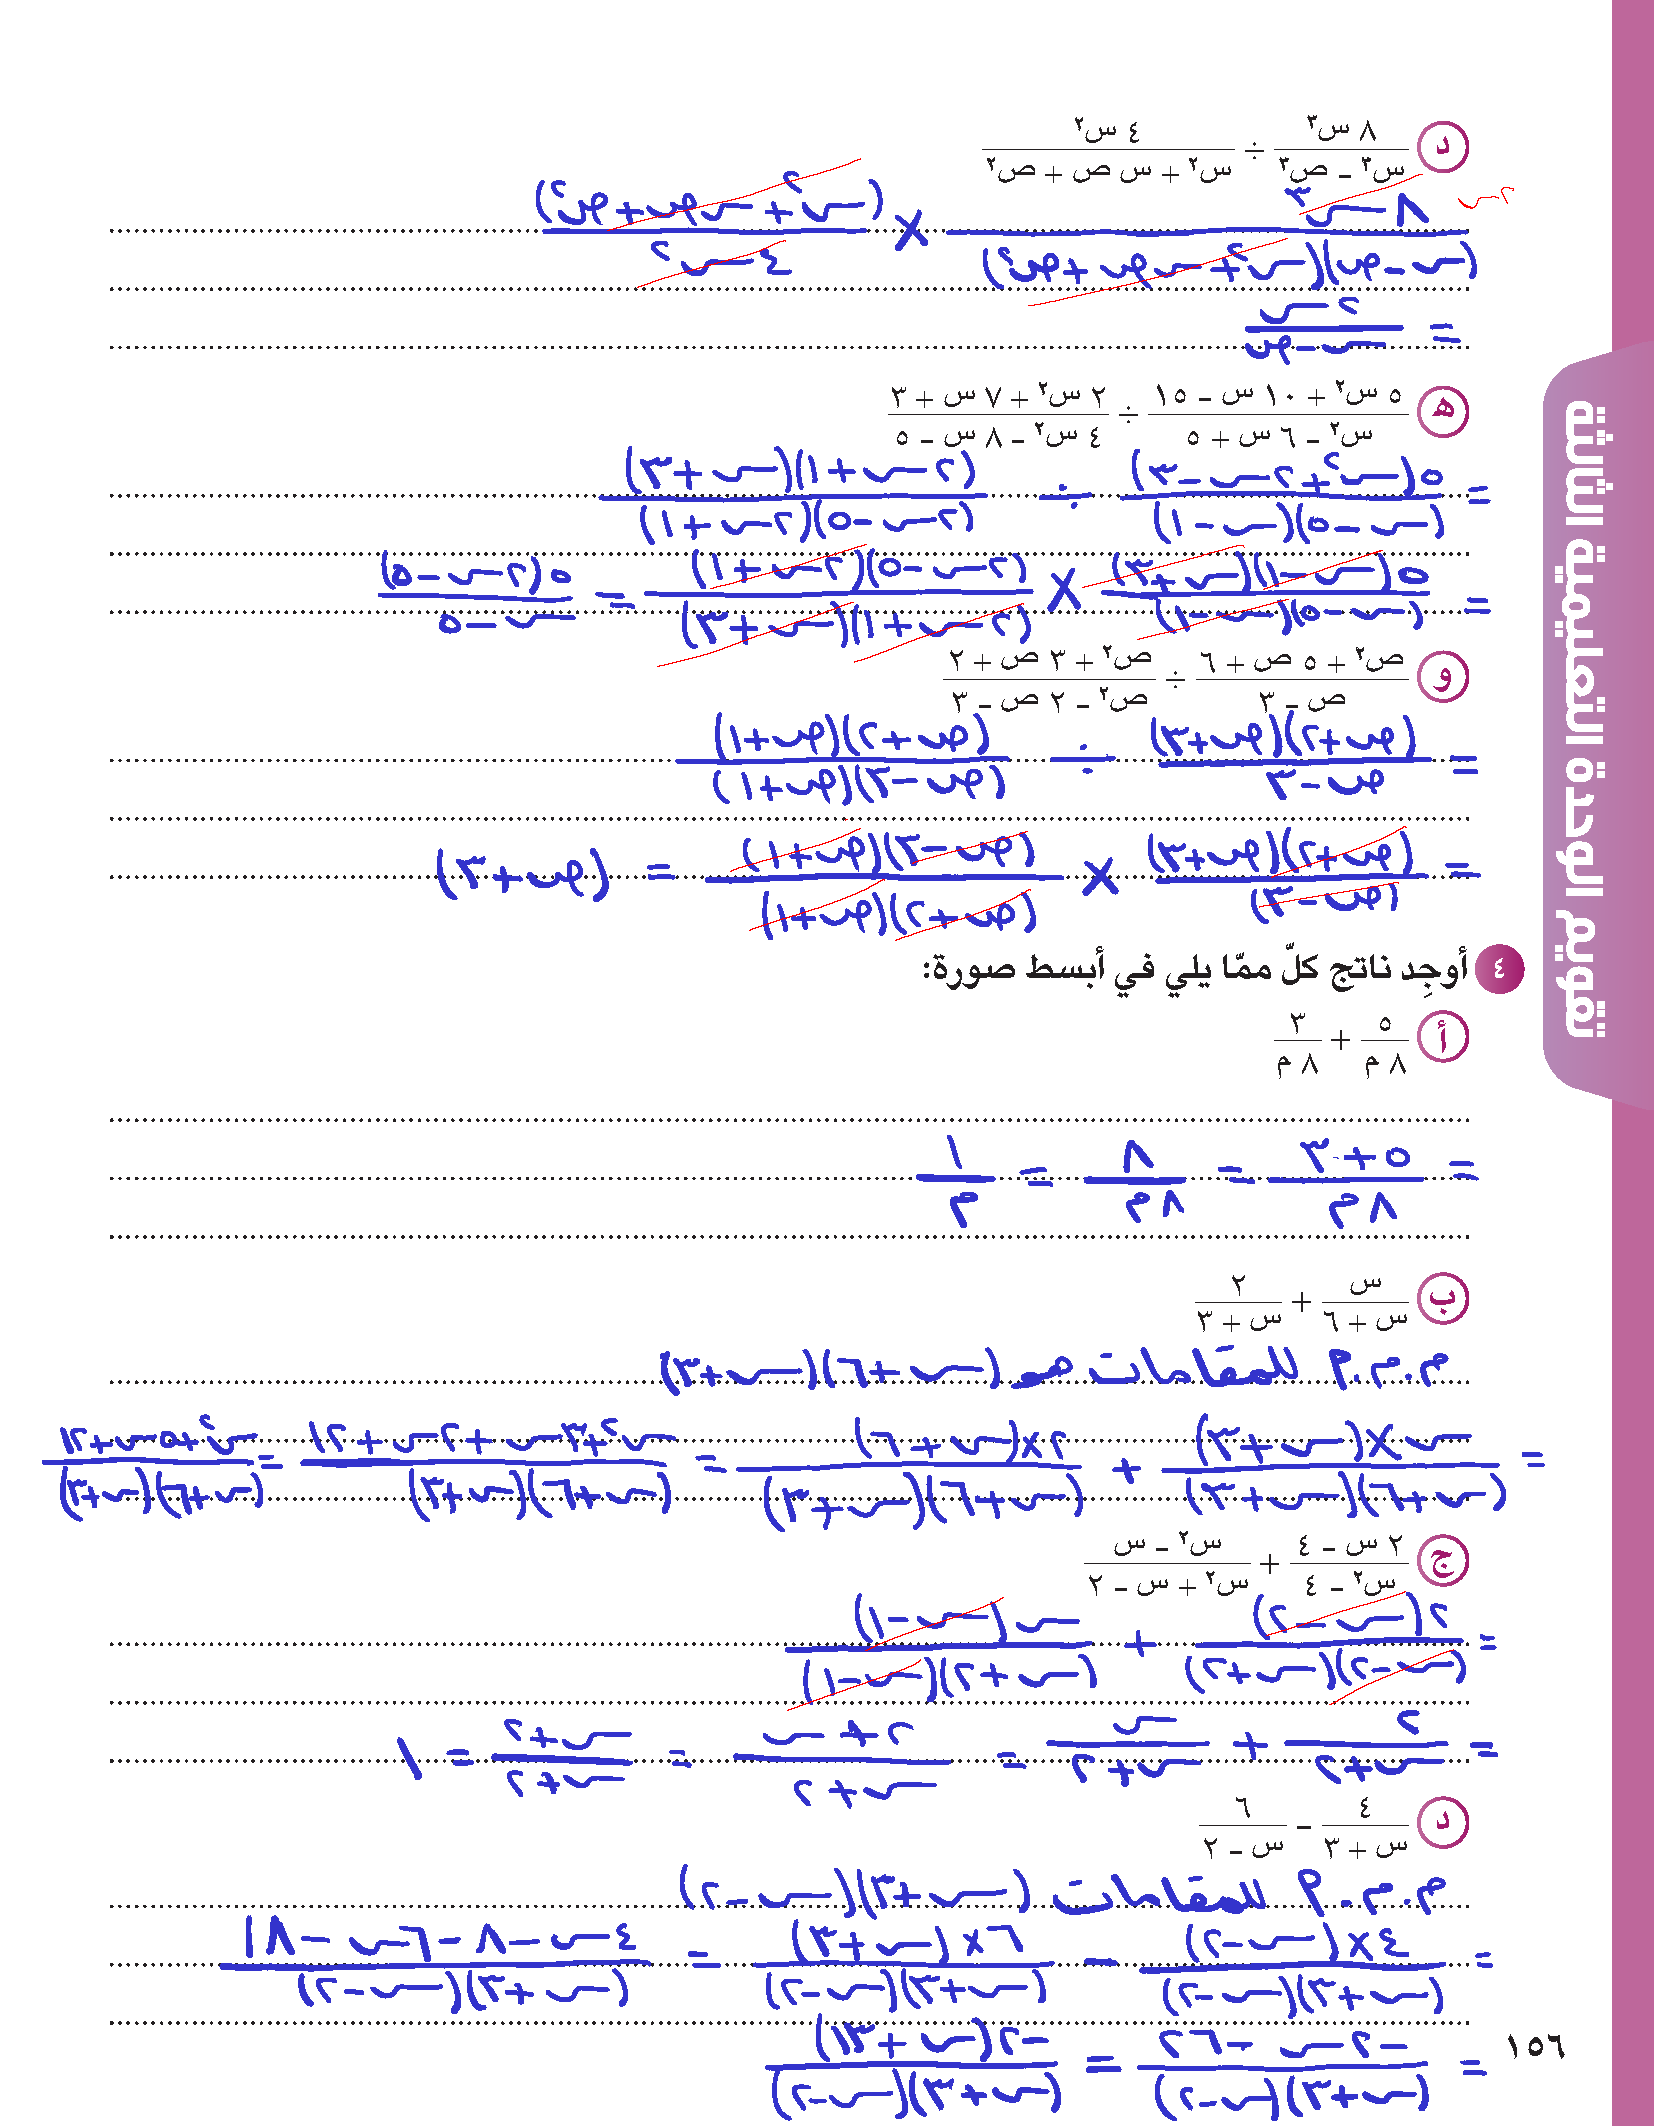 د ٨ س٣ / س٣ – ص٣ ÷ ٤ س٢ / س٢ + س ص + ص٢
٨ س٣ / (س – ص)(س٢ + س ص + ص٢) × (س٢ + س ص + ص٢) / ٤ س٢
٢س
= ٢ س / س – ص
هـ ٥ س٢ + ١٠ س – ١٥ / س٢ – ٦ س + ٥ ÷ ٢ س٢ + ٧ س + ٣ / ٤ س٢ – ٨ س – ٥
= ٥(س٢ + ٢س – ٣) / (س – ٥)(س – ١) ÷ (٢س + ١)(س + ٣) / (٢س – ٥)(٢س + ١)
= ٥(س – ١)(س + ٣) / (س – ٥)(س – ١) × (٢س – ٥)(٢س + ١) / (٢س + ١)(س + ٣) = ٥(٢س – ٥) / س – ٥
و ص٢ + ٥ ص + ٦ / ص – ٣ ÷ ص٢ + ٣ ص + ٢ / ص٢ – ٢ ص – ٣
= (ص + ٢)(ص + ٣) / ص – ٣ ÷ (ص + ٢)(ص + ١) / (ص – ٣)(ص + ١)
= (ص + ٢)(ص + ٣) / (ص – ٣) × (ص – ٣)(ص + ١) / (ص + ٢)(ص + ١) = (ص + ٣)
٤ أوجِد ناتج كلّ ممّا يلي في أبسط صورة:
أ ٥ / ٨ م + ٣ / ٨ م
= ٥ + ٣ / ٨ م = ٨ / ٨ م = ١ / م
ب س / س + ٦ + ٢ / س + ٣
م.م.م للمقامات هو (س + ٦)(س + ٣)
= س × (س + ٣) / (س + ٦)(س + ٣) + ٢ × (س + ٦) / (س + ٦)(س + ٣) = س٢ + ٣س + ٢س + ١٢ / (س + ٦)(س + ٣) = س٢ + ٥س + ١٢ / (س + ٦)(س + ٣)
ج ٢ س – ٤ / س٢ – ٤ + س٢ – س / س٢ + س – ٢
= ٢(س – ٢) / (س – ٢)(س + ٢) + س(س – ١) / (س + ٢)(س – ١)
= ٢ / س + ٢ + س / س + ٢ = ٢ + س / س + ٢ = س + ٢ / س + ٢ = ١
د ٤ / س + ٣ – ٦ / س – ٢
م.م.م للمقامات (س + ٣)(س – ٢)
= ٤ × (س – ٢) / (س + ٣)(س – ٢) – ٦ × (س + ٣) / (س + ٣)(س – ٢) = ٤س – ٨ – ٦س – ١٨ / (س + ٣)(س – ٢)
= –٢س – ٢٦ / (س + ٣)(س – ٢) = –٢(س + ١٣) / (س + ٣)(س – ٢)
١٥٦
تقويم الوحدة التعليمية الثالثة